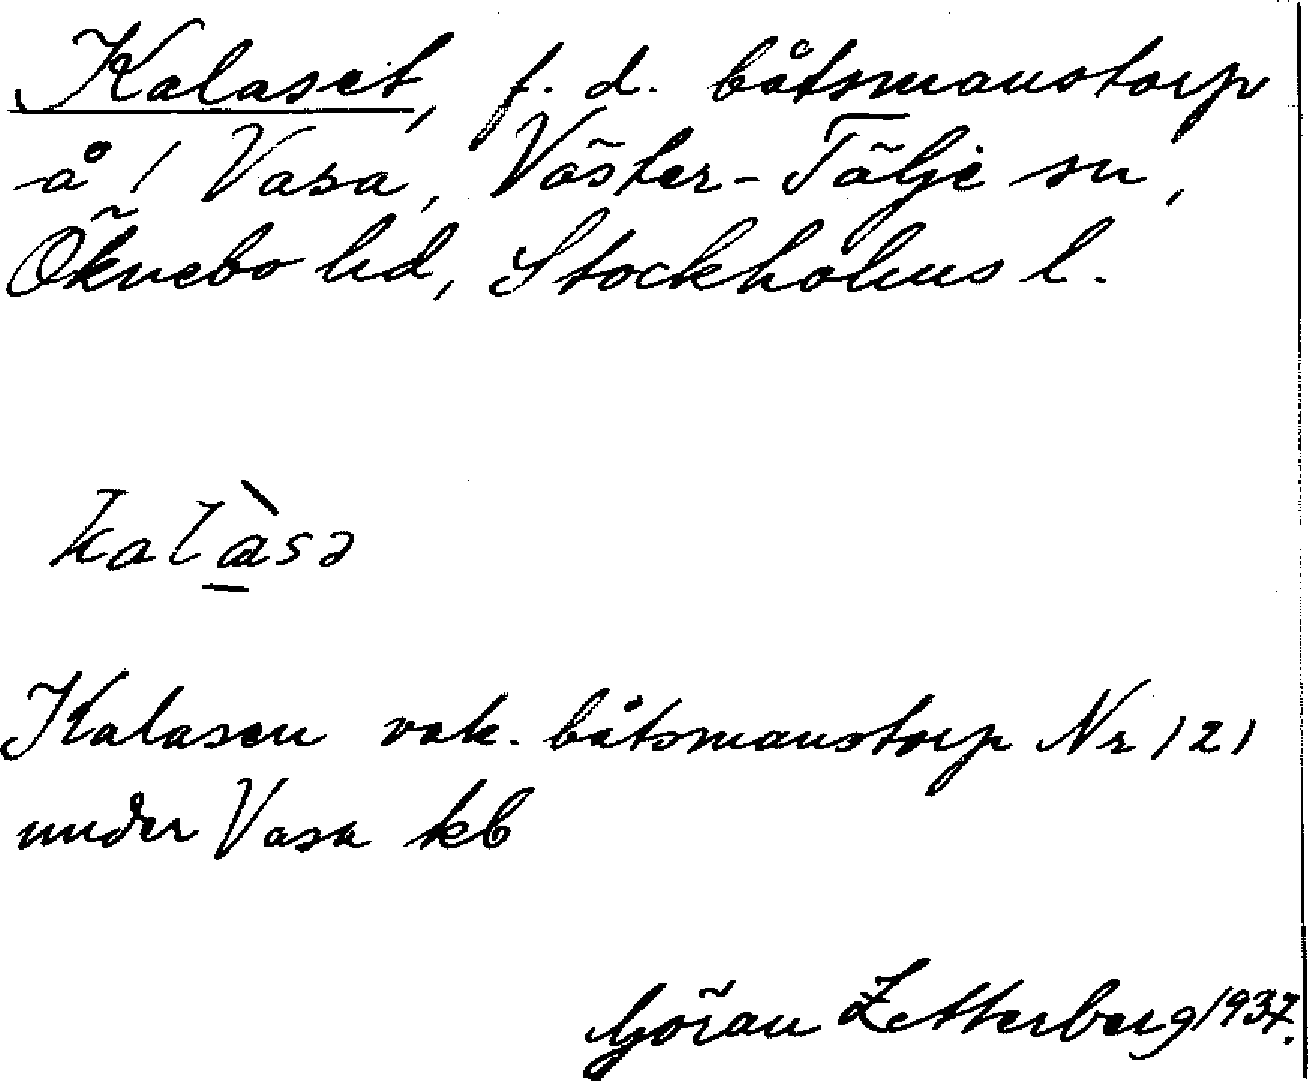 Kalaset, f. d. båtsmanstorp
å 1 Vasa, Väster-Tälje sn,
Öknebo hd, Stockholms l.
kalàsə
Kalasen vak. båtsmanstorp Nr 121
under Vasa kb
Göran Zetterberg 1937.